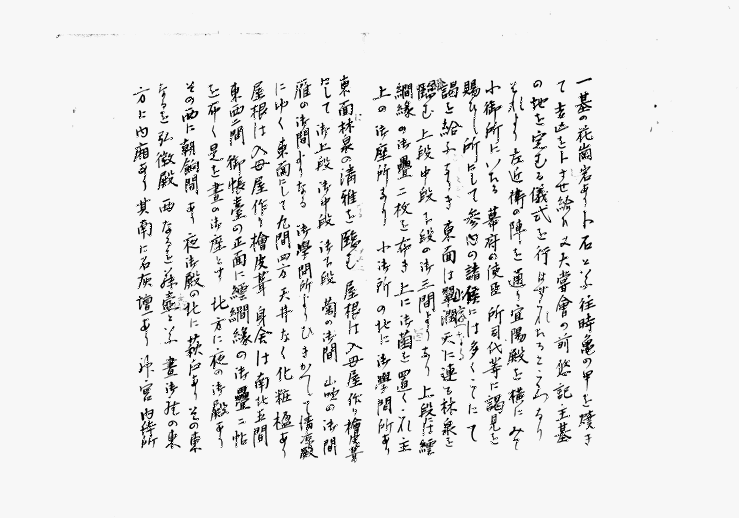 一基の花崗岩あり卜石と云ふ往時亀の甲を焼き
て吉凶を卜させ給ふ又大嘗會の前悠記主基
の地を定むる儀式を行はせずれたるところなり
それより左近衛の陣を通り宜陽殿を横にみて
小御所にいたる 幕府の使臣 所司代等に謁見を
賜ひし所にして参内の諸侯には多くこゝにて
謁を給ふ 東面は 天に連る林泉を
臨む 上段中段下段の御三間より 上段は繧
繝縁の御疊二枚を布き上に御茵を置くこれ主
上の御座所なり 小御所の北に御學問所あり
東面林泉の清雅を臨む 屋根は入母屋作り檜皮葺
にして御上段 御中段 御下段 菊の御間 山吹の御間
雁の御間よりなる 御學問所よりひきかへして清涼殿
にゆく東面にして九間四方 天井なく化粧棰あり
屋根は入母屋作り檜皮葺 身舎は南北五間
東西二間 御帳臺の正面に繧繝縁の御疊二帖
を布く是を晝の御座とす 北方に夜の御殿あり
その西に朝餉間あり 夜御殿の北に萩戸あり その東
なるを弘徽殿 西なるを藤壺と云ふ 晝御座の東
方に内廂あり 其南に石灰壇あり 神宮内侍所